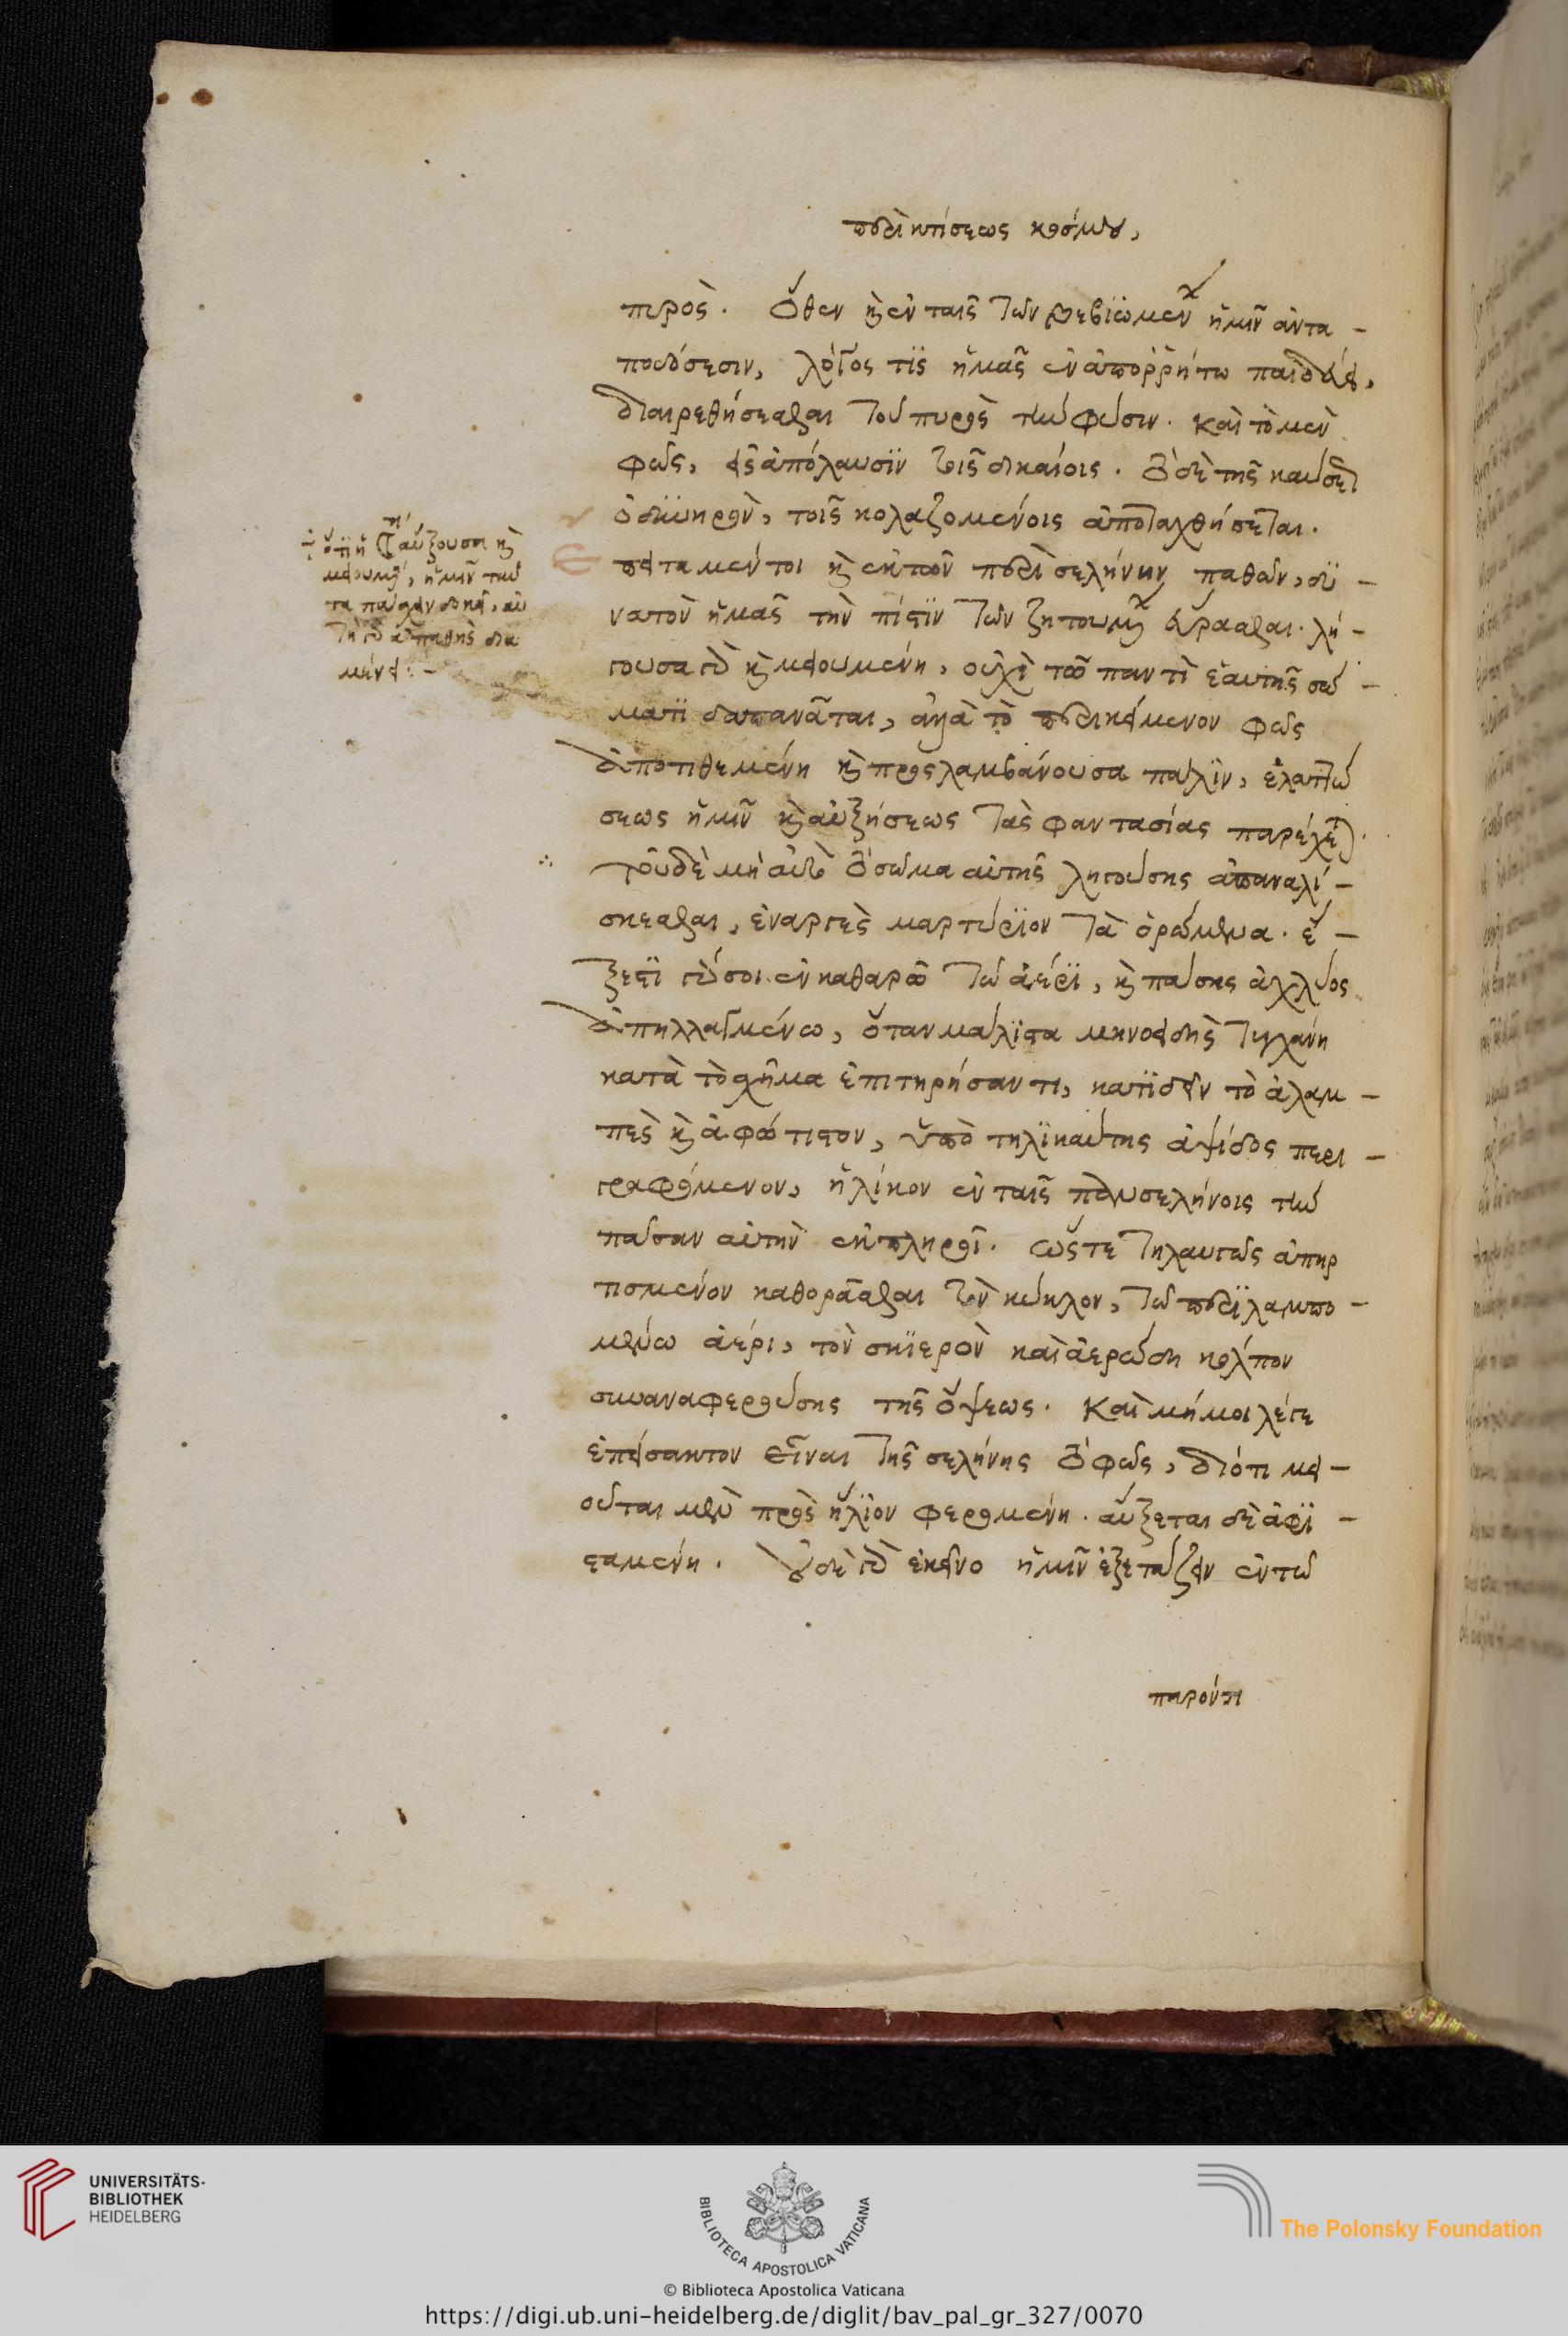 περὶ κτίσεως κόσμου,
πυρός. Ὅθεν καὶ ἐν ταῖς τῶν βεβιωμένων ἡμῖν ἀντα-
ποδόσεσιν, λόγος τὶς ἡμᾶς ἐν ἀπορρήτω παιδεύει,
διαιρεθήσεσθαι τοῦ πυρὸς τὴν φύσιν. καὶ τὸ μὲν
φῶς, εἰς ἀπόλαυσιν τοῖς δικαίοις. τὸ δὲ τῆς καύσεως
ὀδυνηρὸν, τοῖς κολαζομένοις ἀποταχθήσεται.
Ἔπειτα μέντοι καὶ ἐκ τῶν περὶ σελήνην παθῶν, δυ-
νατὸν ἡμᾶς τὴν πίστιν τῶν ζητουμένων εὕρασθαι. λή-
γουσα γὰρ καὶ μειουμένη, οὐχὶ τῶ παντὶ ἑαυτῆς σώ-
ματι δαπανᾶται, ἀλλὰ τὸ περικείμενον φῶς
ἀποτιθεμένη καὶ προσλαμβάνουσα πάλιν, ἐλαττώ
σεως ἡμῖν καὶ αὐξήσεως τὰς φαντασίας παρέχει.
τοῦ δὲ μὴ αὐτὸ τὸ σῶμα αὐτῆς ληγούσης ἀπαναλί-
σκεσθαι, ἐναργὲς μαρτύριον τὰ ὁρώμενα. ἔ-
ξεστι γάρ σοι ἐν καθαρῶ τῶ ἀέρι, καὶ πάσης ἀχλύος
ἀπηλλαγμένω, ὅταν μάλιστα μηνοειδὴς τυγχάνη
κατὰ τὸ σχῆμα ἐπιτηρήσαντι, κατιδεῖν τὸ ἀλαμ-
πὲς καὶ ἀφώτιστον, ὑπὸ τηλικαύτης ἀψίδος περι-
γραφόμενον, ἡλίκον ἐν ταῖς πανσελήνοις τὴν
πᾶσαν αὐτὴν ἐκπληροῖ. ὥστε τηλαυγῶς ἀπηρ
τισμένον καθορᾶσθαι τὸν κύκλον, τῶ περιλαμπο-
μένω ἀέρι, τὸν σκιερὸν καὶ ἀερώδη κόλπον
συναναφερούσης τῆς ὄψεως. καὶ μή μοι λέγε
ἐπείσακτον εἶναι τῆς σελήνης τὸ φῶς, διότι μει-
οῦται μὲν πρὸς ἥλιον φερομένη. αὔξεται δὲ ἀφι-
σταμένη. οὐδὲ γὰρ ἐκεῖνο ἡμῖν ἐξετάζειν ἐν τῶ
παρόντι
ὅτι ἡ αὔξουσα καὶ
μειουμένη, ἡμῖν ταῦ
τα πάσχειν δοκεῖ, αὐ
τὴ γὰρ ἀπαθὴς δια
μένει:-
UNIVERSITÄTS-
BIBLIOTHEK
HEIDELBERG
BIBLIOTECA APOSTOLICA VATICANA
© Biblioteca Apostolica Vaticana
The Polonsky Foundation
https://digi.ub.uni-heidelberg.de/diglit/bav_pal_gr_327/0070